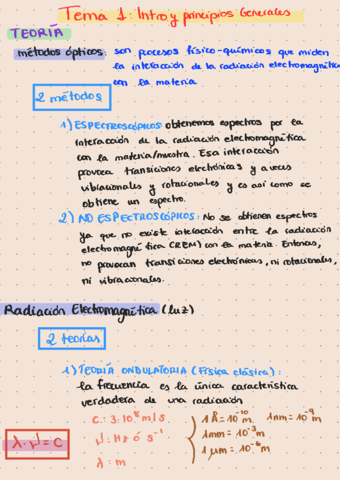 Tema 1: Intro y principios Generales
TEORÍA
métodos ópticos: son procesos físico-químicos que miden
la interacción de la radiación electromagnética
con la materia
2 métodos
1) ESPECTROSCÓPICOS: obtenemos espectros por la
interacción de la radiación electromagnética
con la materia/muestra. Esa interacción
provoca transiciones electrónicas y a veces
vibracionales y rotacionales y es así como se
obtiene un espectro.
2) NO ESPECTROSCÓPICOS: No se obtienen espectros
ya que no existe interacción entre la radiación
electromagnética (REM) con la materia. Entonces,
no provocan transiciones electrónicas, ni rotacionales,
ni vibracionales.
Radiación Electromagnética (luz)
2 teorías
1) TEORÍA ONDULATORIA (Física clásica):
la frecuencia es la única característica
verdadera de una radiación
λ·ν = C
C: 3·10⁸ m/s
ν: Hz ó s⁻¹
λ: m
1 Å = 10⁻¹⁰ m 1nm = 10⁻⁹ m
1mm = 10⁻³ m
1 μm = 10⁻⁶ m